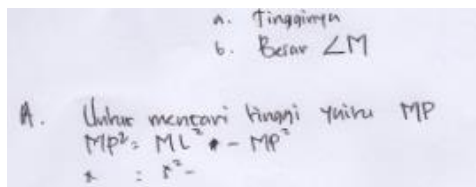 a. Tingginya
b. Besar ∠M
A. Untuk mencari tinggi yaitu MP
MP² = ML² - MP²